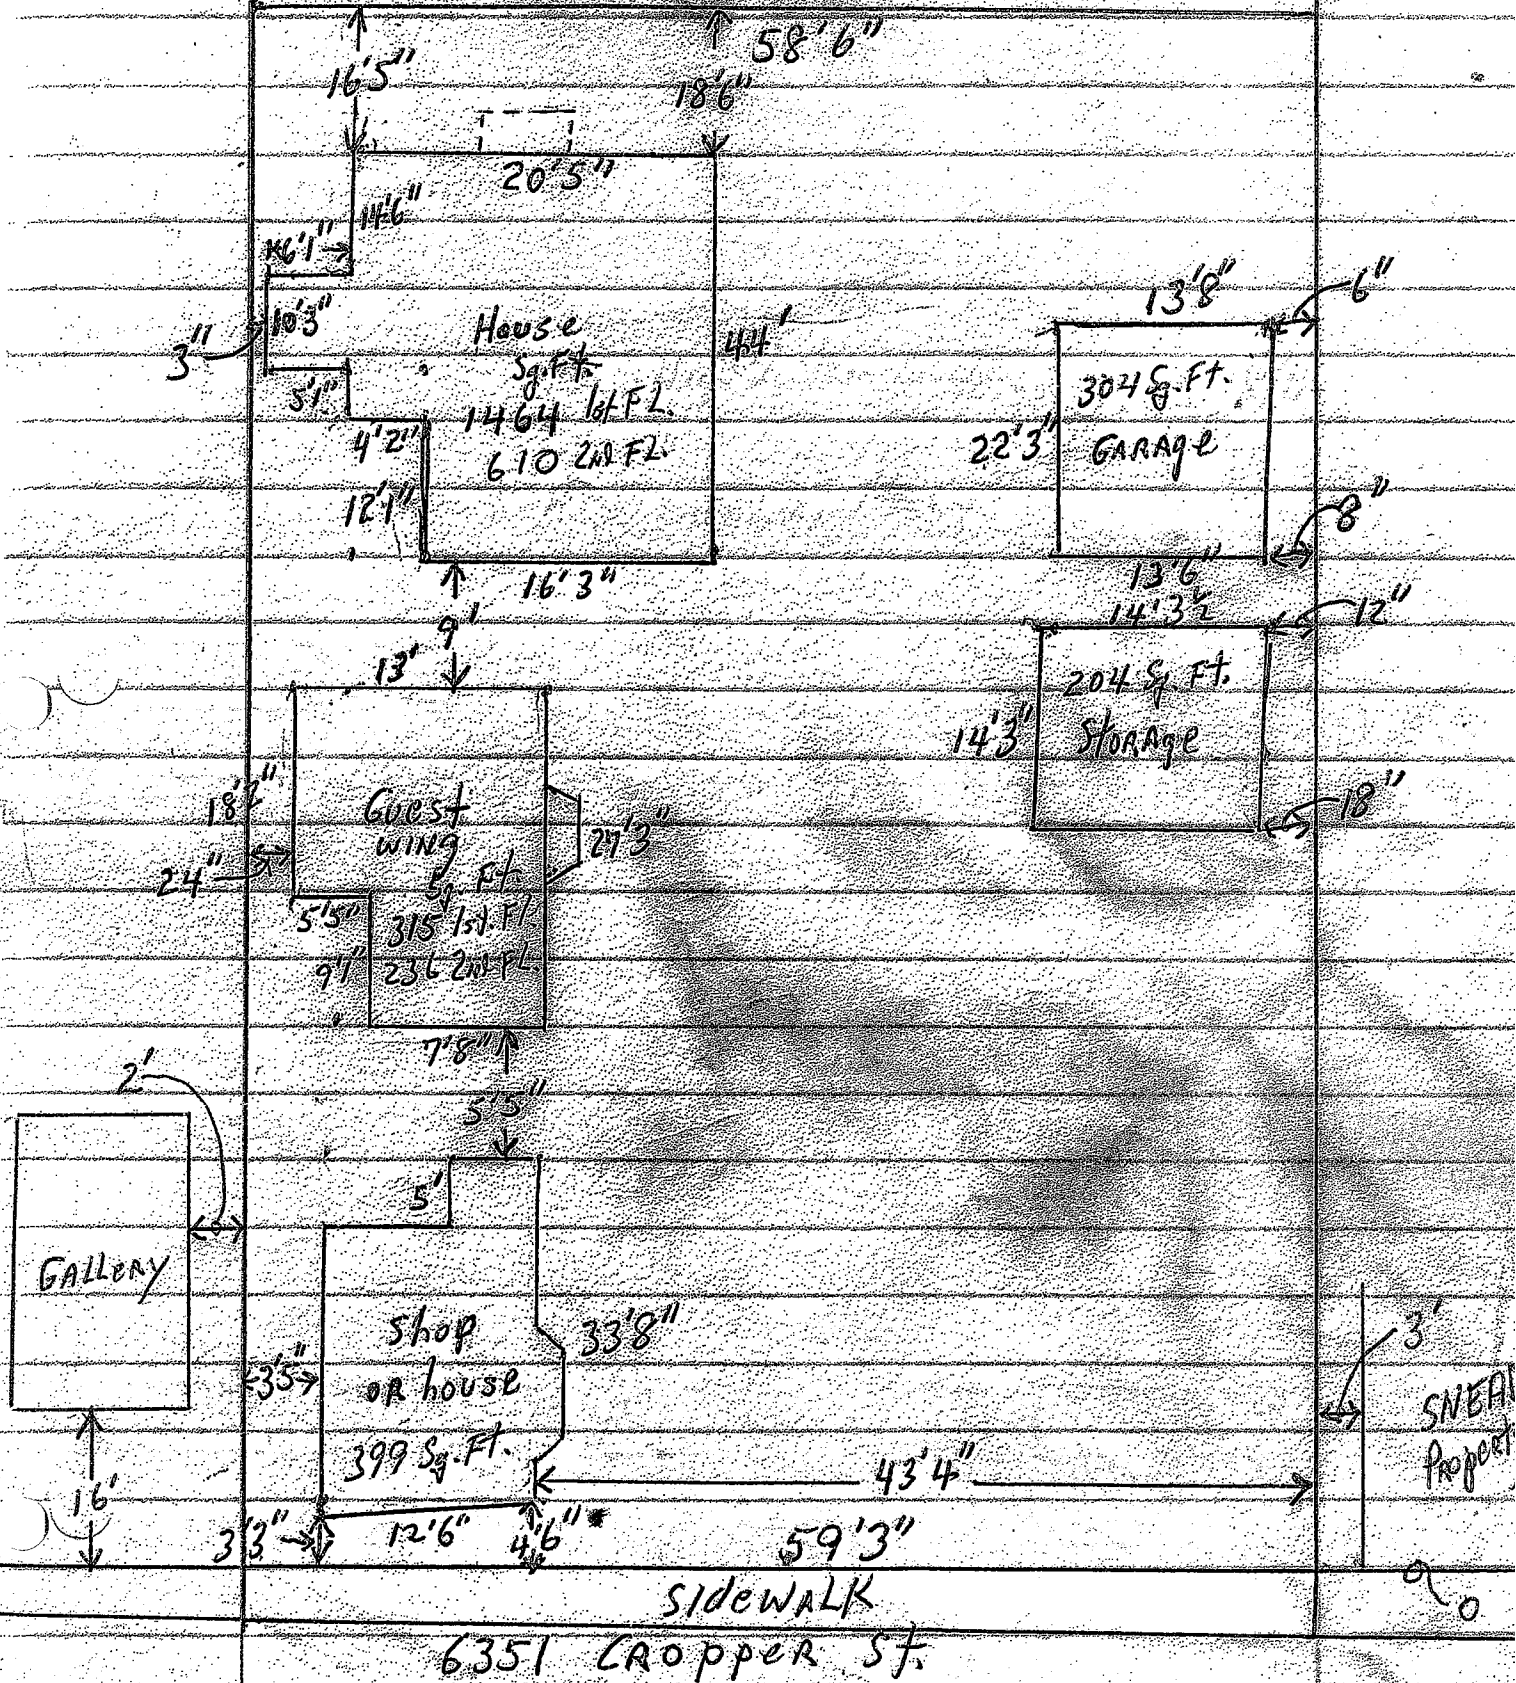 58'6"
16'5"
18'6"
20'5"
14'6"
6'1"
10'3"
3"
House
Sq.Ft.
1464 1st FL.
610 2nd FL.
44'
5'1"
4'2"
12'1"
16'3"
13'8"
6"
304 Sq. Ft.
GARAge
22'3"
8"
13'6"
14'3½
12"
204 Sq. Ft.
StoRAge
14'3"
18"
9'
13'
18'2"
Guest
WING
Sq. Ft.
315 1st. Fl.
236 2nd FL.
27'3"
24"
5'5"
9'1"
7'8"
5'5"
2'
GALLERY
16'
5'
Shop
OR house
399 Sq. Ft.
33'8"
3'5"
43'4"
3'
Propert
3'3"
12'6"
4'6"
59'3"
SIdeWALK
6351 CRoppeR St.